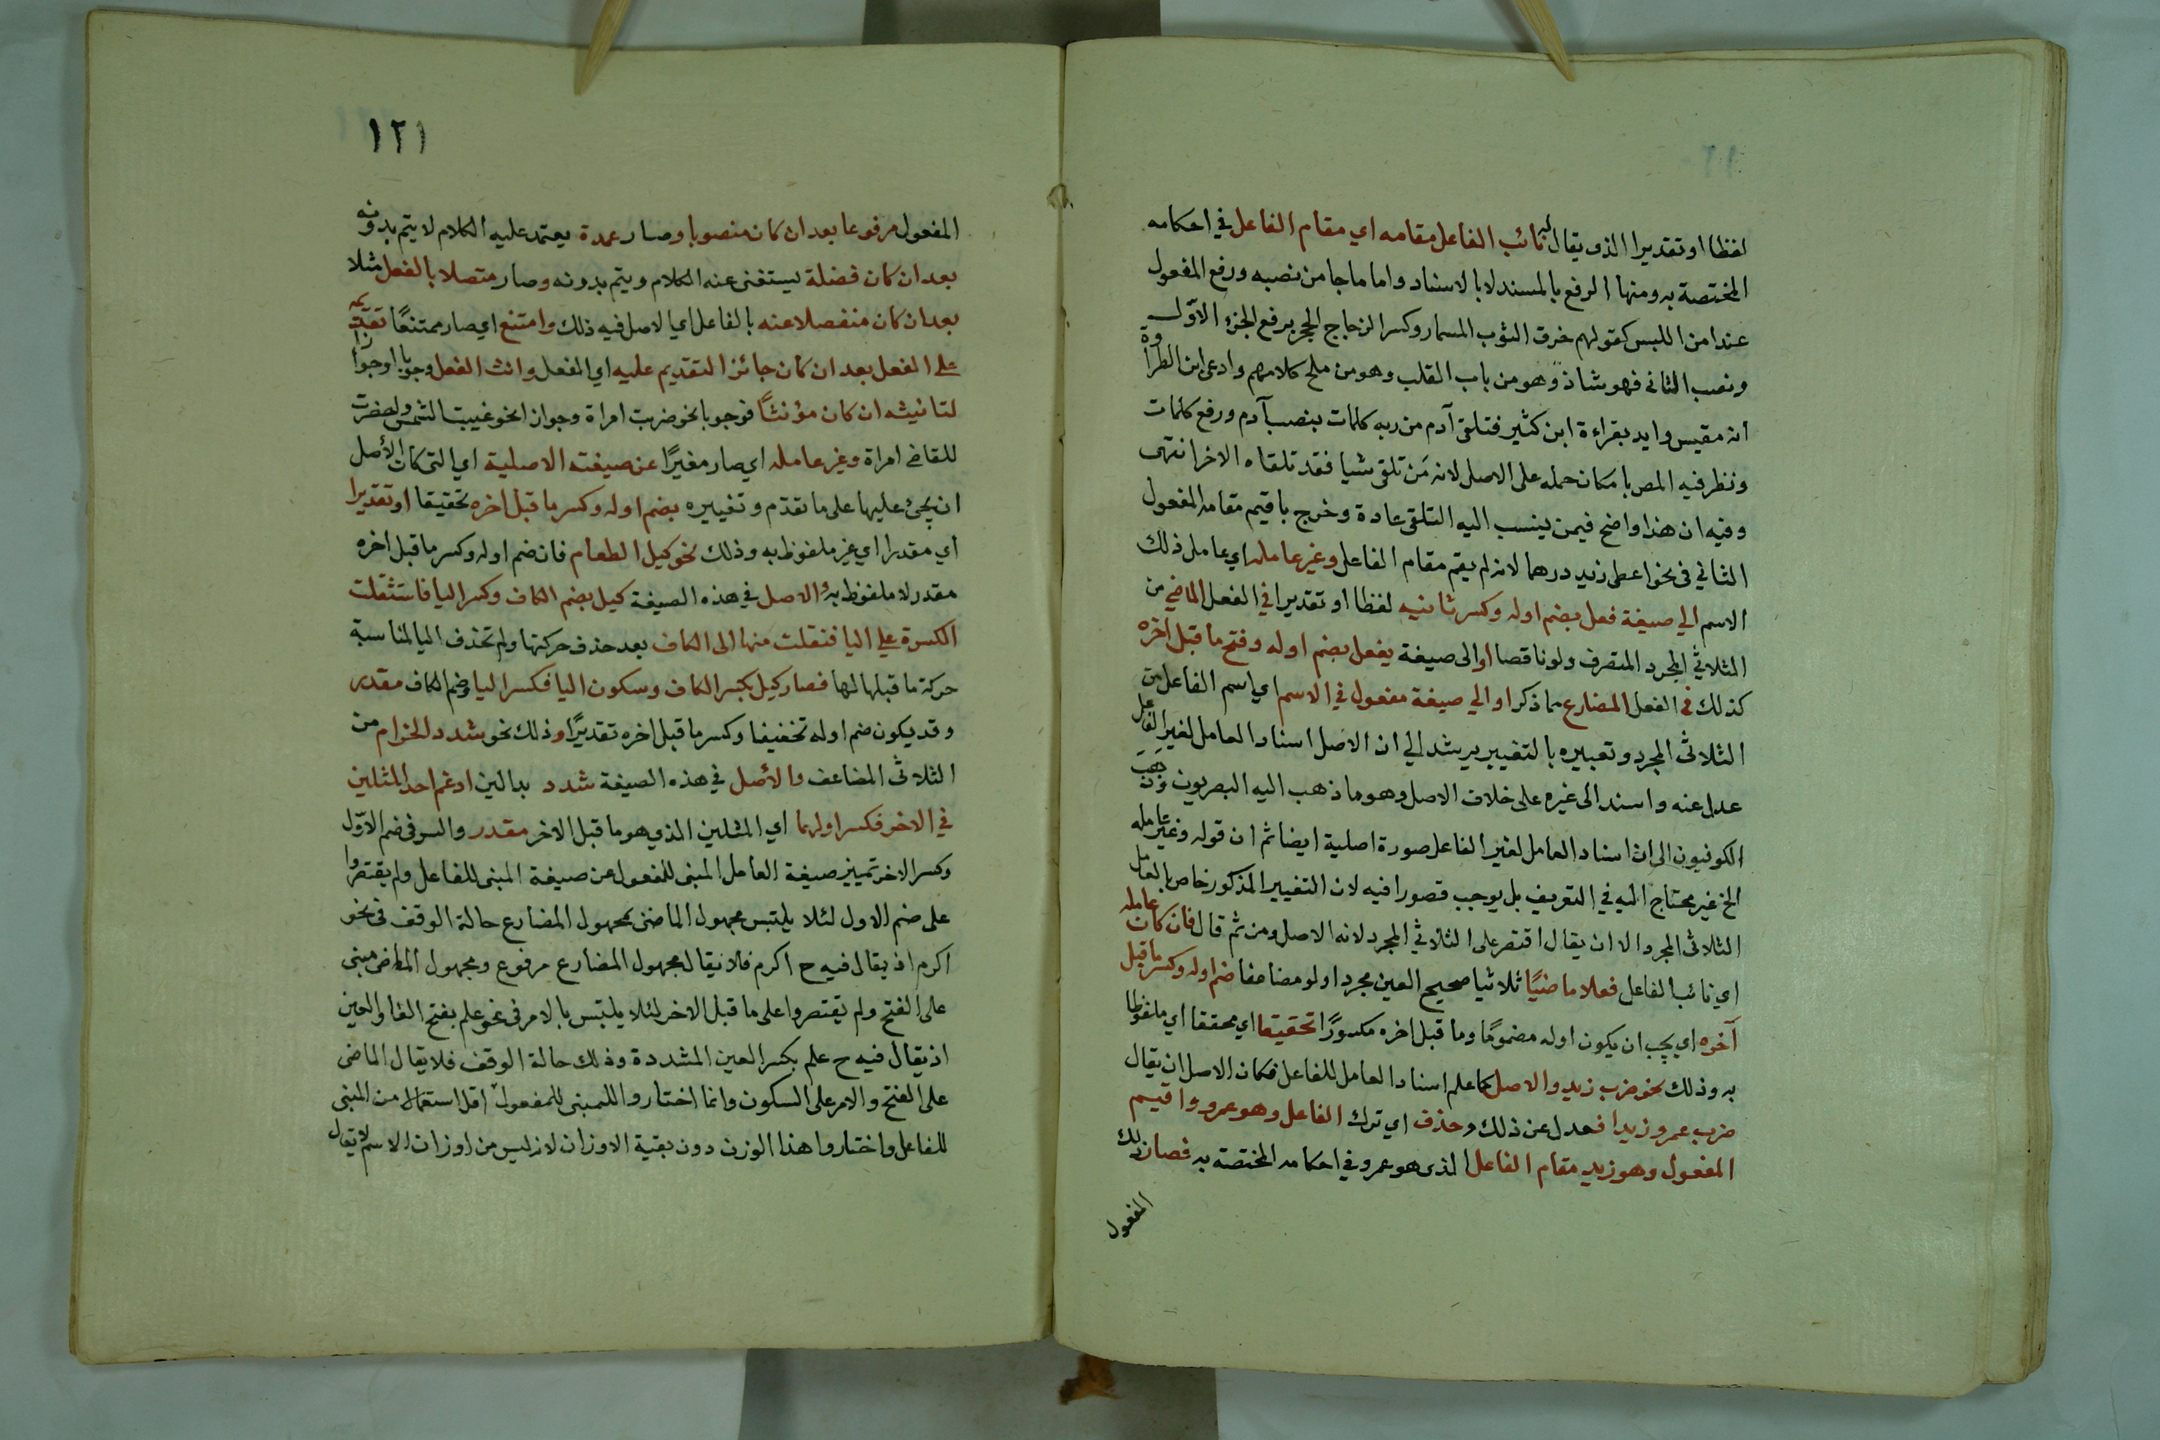 لفظا او تقديرا الذى يقال له نائب الفاعل مقامه اي مقام الفاعل في احكامه
المختصة به ومنها الرفع بالمسند لا بالاسناد واما ما جا من نصبه ورفع المفعول
عند امن اللبس كقولهم خرق الثوب المسمار وكسر الزجاج الحجر برفع الجزء الاوّل
ونصب الثانى فهو شاذ وهو من باب القلب وهو من ملح كلامهم وادعى ابن الطراوة
انه مقيس وايد بقراءة ابن كثير فتلقى آدم من ربه كلمات بنصب آدم ورفع كلمات
ونظر فيه المص بامكان حمله على الاصل لانه مَن تلقى شيا فقد تلقاه الاخر انتهى
وفيه ان هذا واضح فيمن ينسب اليه التلقى عادة وخرج باقيم مقامه المفعول
الثاني فى نحو اعطى زيد درهما لانه لم يقم مقام الفاعل وغير عامله اي عامل ذلك
الاسم الي صيغة فعل بضم اوله وكسر ثانيه لفظا او تقديرا في الفعل الماضي من
الثلاثي المجرد المتصرف ولو ناقصا او الى صيغة يفعل بضم اوله وفتح ما قبل آخره
كذلك فى الفعل المضارع مما ذكر او الي صيغة مفعول في الاسم اي اسم الفاعل من
الثلاثى المجرد وتعبيره بالتغيير يرشد الي ان الاصل اسناد العامل لغير الفاعل
عدل عنه واسند الى غيره على خلاف الاصل وهو ما ذهب اليه البصريون وذهب
الكوفيون الى ان اسناد العامل لغير الفاعل صورة اصلية ايضا ثم ان قوله وغير عامله
الخ غير محتاج اليه في التعريف بل يوجب قصورا فيه لان التغيير المذكور خاص بالعامل
الثلاثى المجرد الا ان يقال اقتصر على الثلاثي المجرد لانه الاصل ومن ثم قال فان كان عامله
اي نائب الفاعل فعلا ماضيًا ثلاثيا صحيح العين مجردا ولو مضاعفا ضم اوله وكسر ما قبل
آخره اي يجب ان يكون اوله مضمومًا وما قبل اخره مكسورًا تحقيقا اي محققا اي ملفوظا
به وذلك نحو ضرب زيد والاصل كما علم اسناد العامل للفاعل فكان الاصل ان يقال
ضرب عمرو زيدا فعدل عن ذلك وحذف اي ترك الفاعل وهو عمرو واقيم
المفعول وهو زيد مقام الفاعل الذى هو عمرو في احكامه المختصة به فصار ذلك
المفعول
١٢١
المفعول مرفوعا بعد ان كان منصوبا وصار عمدة يعتمد عليه الكلام لا يتم بدونه
بعد ان كان فضلة يستغنى عنه الكلام ويتم بدونه وصار متصلا بالفعل مثلا
بعد ان كان منفصلا عنه بالفاعل اي لاصل فيه ذلك وامتنع اي صار ممتنعًا تقديمه
على الفعل بعد ان كان جائز التقديم عليه اي الفعل وانث الفعل وجوبا او جوازا
لتانيثه ان كان مؤنثًا فوجوبا نحو ضربت امراة وجوازا نحو غيبت الشمس ولحضرت
للقاضى امراة وغير عامله اي صار مغيرًا عن صيغته الاصلية اي التى كان الأصل
ان يجئ عليها على ما تقدّم وتغييره بضم اوله وكسر ما قبل اخره تحقيقا او تقديرا
اي مقدرا اي غير ملفوظ به وذلك نحو كيل الطعام فان ضم اوله وكسر ما قبل اخره
مقدر لا ملفوظ به والاصل في هذه الصيغة كيل بضم الكاف وكسر اليا فاستثقلت
الكسرة على اليا فنقلت منها الى الكاف بعد حذف حركتها ولم تحذف اليا لمناسبة
حركة ما قبلها لها فصار كيل بكسر الكاف وسكون اليا فكسر اليا وضم الكاف مقدر
وقد يكون ضم اوله تحقيقا وكسر ما قبل اخره تقديرًا وذلك نحو شد الحزام من
الثلاثى المضاعف والأصل في هذه الصيغة شدد بدالين ادغم احد المثلين
في الاخر فكسر اولهما اي المثلين الذي هو ما قبل الاخر مقدر والسر فى ضم الاوّل
وكسر الاخر تمييز صيغة العامل المبنى للمفعول عن صيغة المبنى للفاعل ولم يقتصروا
على ضم الاول لئلا يلتبس مجهول الماضى بمجهول المضارع حالة الوقف فى نحو
اكرم اذ يقال فيه ح اكرم فلا يقال مجهول المضارع مرفوع ومجهول الماضى مبنى
على الفتح ولم يقتصروا على ما قبل الاخر لئلا يلتبس بالامر فى نحو علم بفتح الفا والعين
اذ يقال فيه ح علم بكسر العين المشددة وذلك حالة الوقف فلا يقال الماضى
على الفتح والامر على السكون وانما اختاروا للمبنى للمفعول اقل استعمالا من المبنى
للفاعل واختاروا هذا الوزن دون بقية الاوزان لانه ليس من اوزان الاسم لا يقال